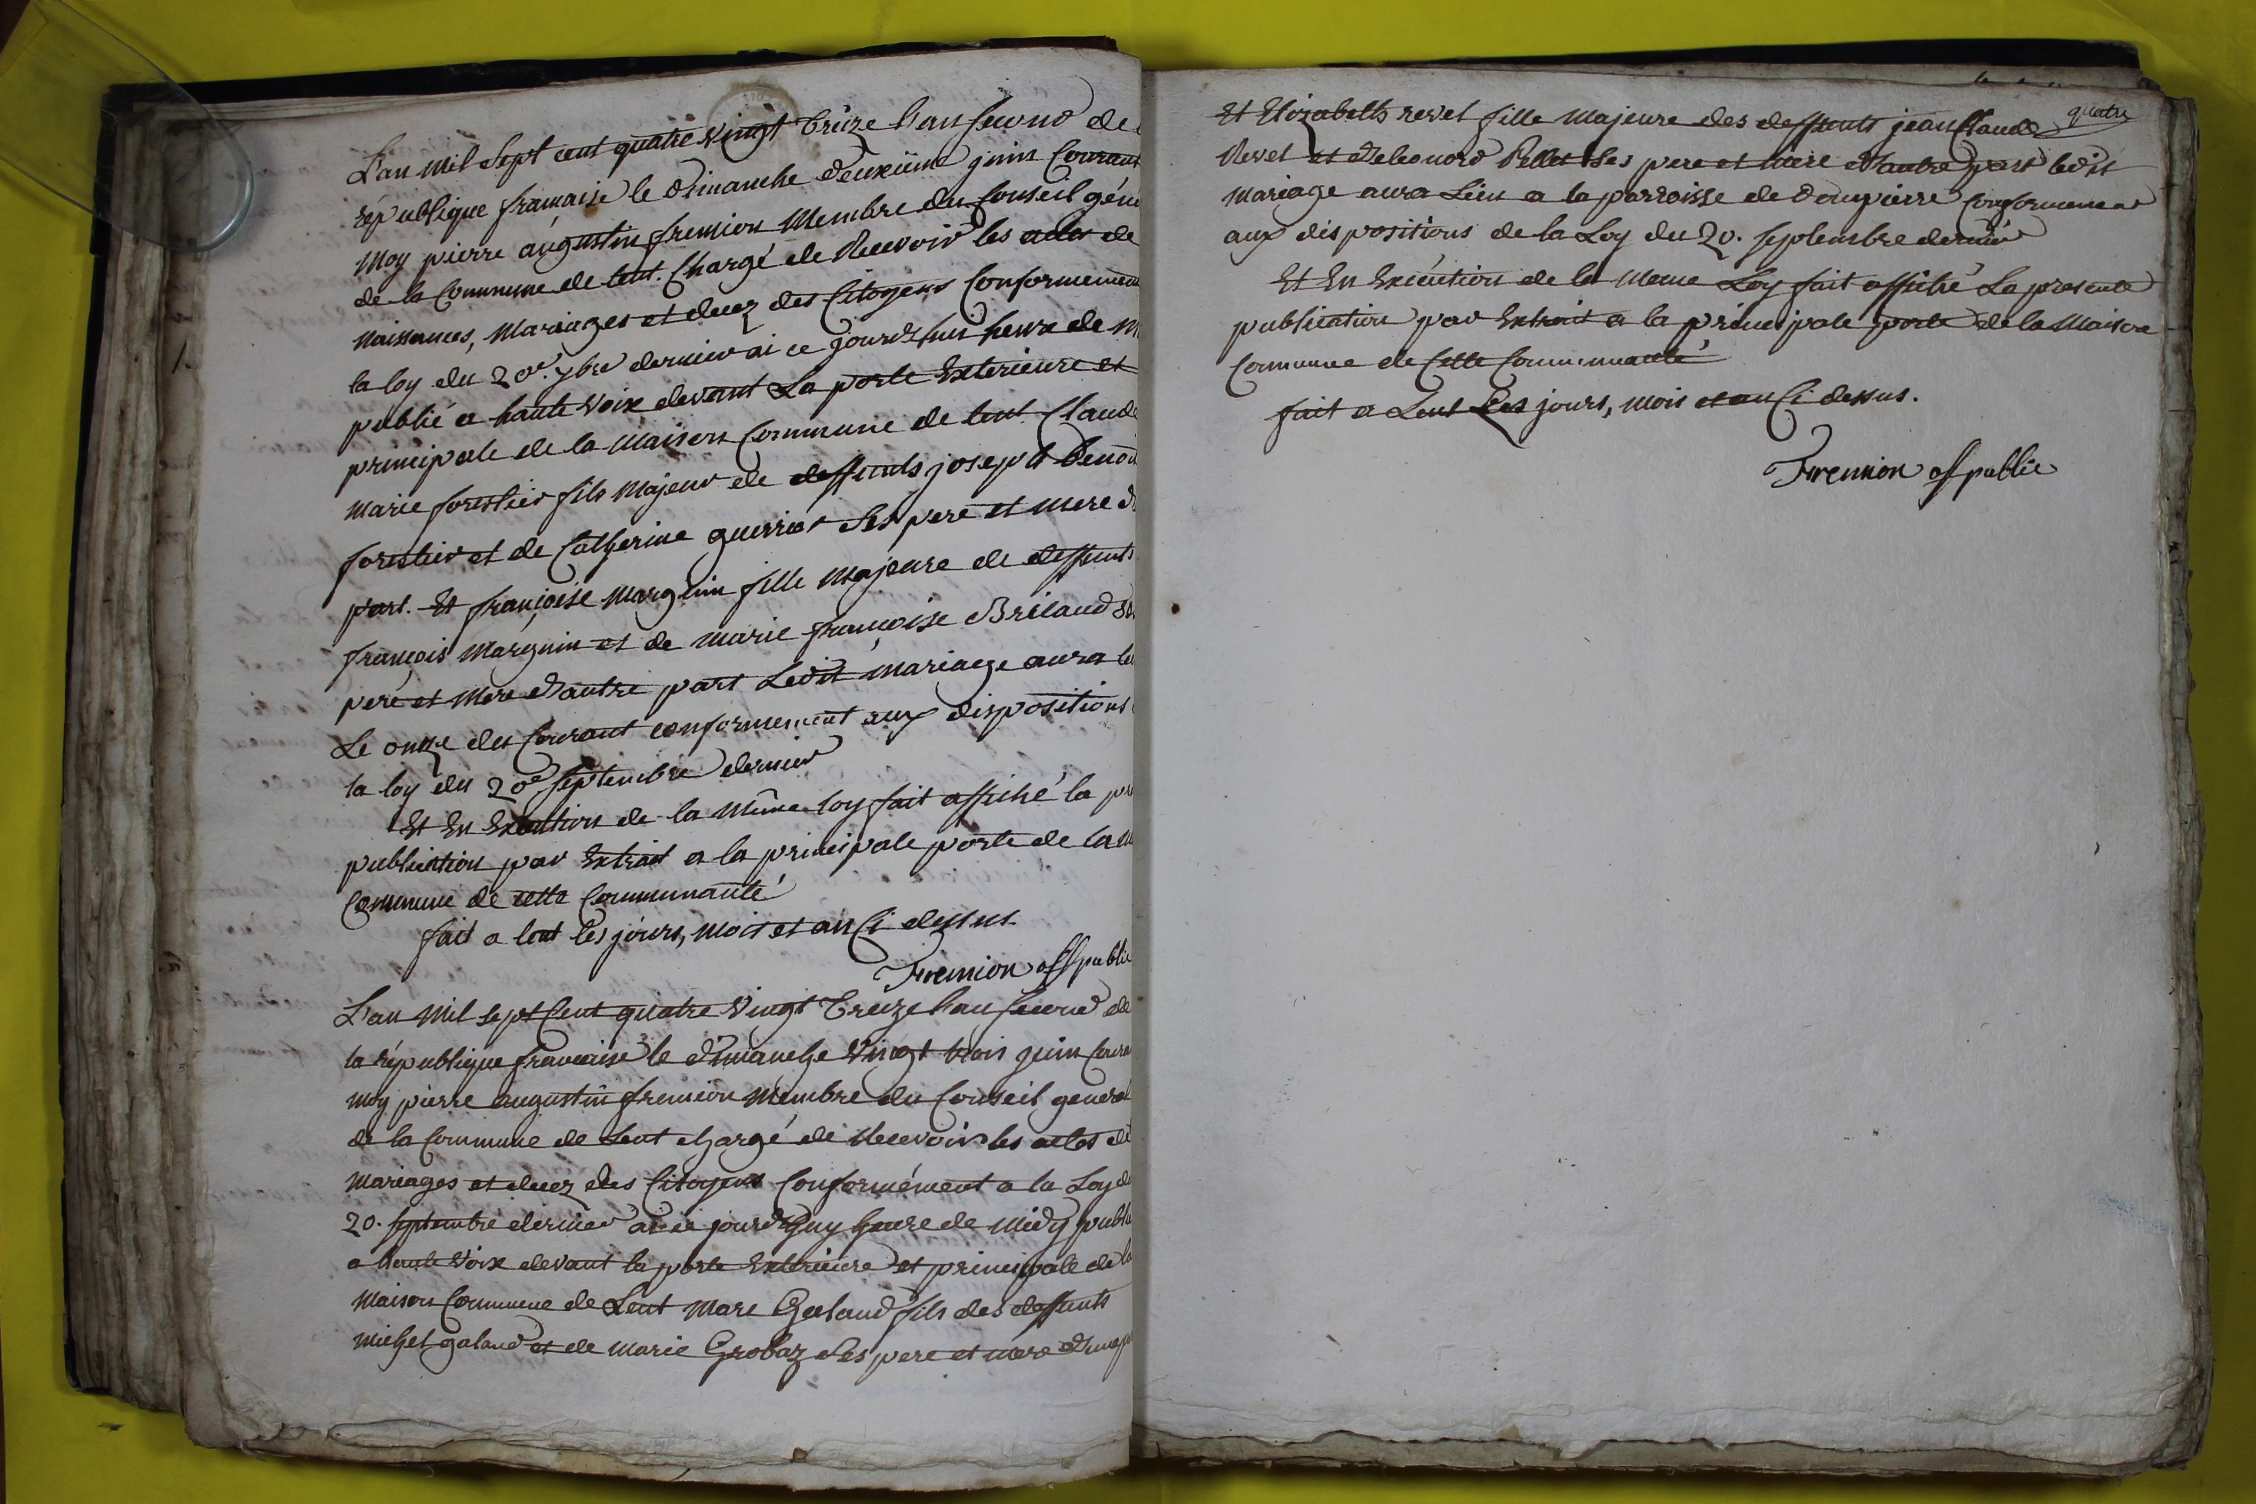 L'an Mil Sept cent quatre vingt treize l'an second de
république française le dimanche deuxiéme juin Courant
Moy pierre augustin fremion Membre du Conseil géné
de la Commune de lent Chargé de Recevoir les actes de
Naissances, Mariages et decez des Citoyens Conformement
la loy du 20e. 7bre dernier ai ce jourd'hui heure de m
publié a haute voix devant La porte Exterieure et
principale de la Maison Commune de lent Claude
Marie forestier fils Majeur de deffunts joseph benoit
forestier et de Catherine guerrier Ses pere et mere d
part. Et françoise Marguin fille Majeure de deffunts
françois Marguin et de Marie françoise Brilaud
pere et Mere d'autre part Ledit mariage aura
Le onze du Courant conformement aux dispositions
la loy du 20e Septembre dernier
Et En Execution de la Même loy fait affiché la pr
publication par Extrait a la principale porte de la M
Commune de cette Communauté
fait a lent les jours, mois et an Ci dessus.
Fremion off public
L'an Mil sept Cent quatre Vingt Treize l'an second de
la république francaise le dimanche Vingt trois juin Coura
moy pierre augustin fremion Membre du Conseil general
de la Commune de Lent chargé de Recevoir les actes de
Mariages et decez des Citoyens Conformément a la Loy du
20. septembre dernier ai ce jourd'huy heure de midy publ
a haute voix devant la porte Exterieure et principale de la
Maison Commune de Lent Marc Galand fils des deffunts
Michel galand et de Marie Grobaz Ses pere et mere d'une
quatre
Et Elizabeth revel fille Majeure des deffunts jean Claude
Revel et d'eleonord Pellet Ses pere et mere d'autre part ledit
mariage aura Lieu a la parroisse de dompierre Conformement
aux dispositions de la Loy du 20. septembre dernier
Et En Execution de la Meme Loy fait affiché La presente
publication par Extrait a la principale porte de la Maison
Commune de Cette Communauté
fait a Lent Les jours, mois et an Ci dessus.
Fremion off public